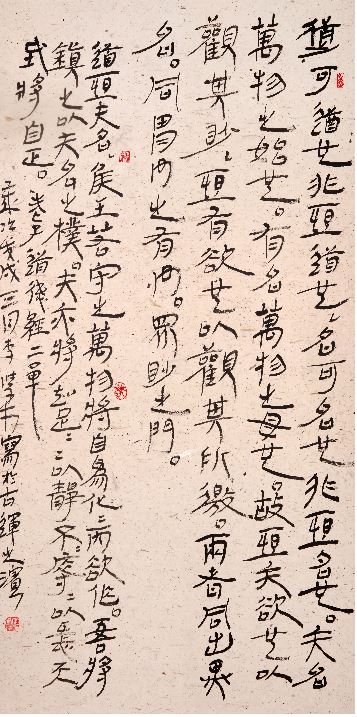 道可道也非恒道也、名可名也非恒名也。无名
萬物之始也。有名萬物之母也。故恒无欲也以
觀其眇、恒有欲也以觀其所徼。兩者同出異
名。同胃玄之有玄。眾眇之門。
道恒无名、侯王若守之萬物將自化而欲作。吾將
鎮之以无名之樸。夫亦將知足以靜不辱以天
將自正。老子道德經二章
歲次戌三月李寫於古之濱